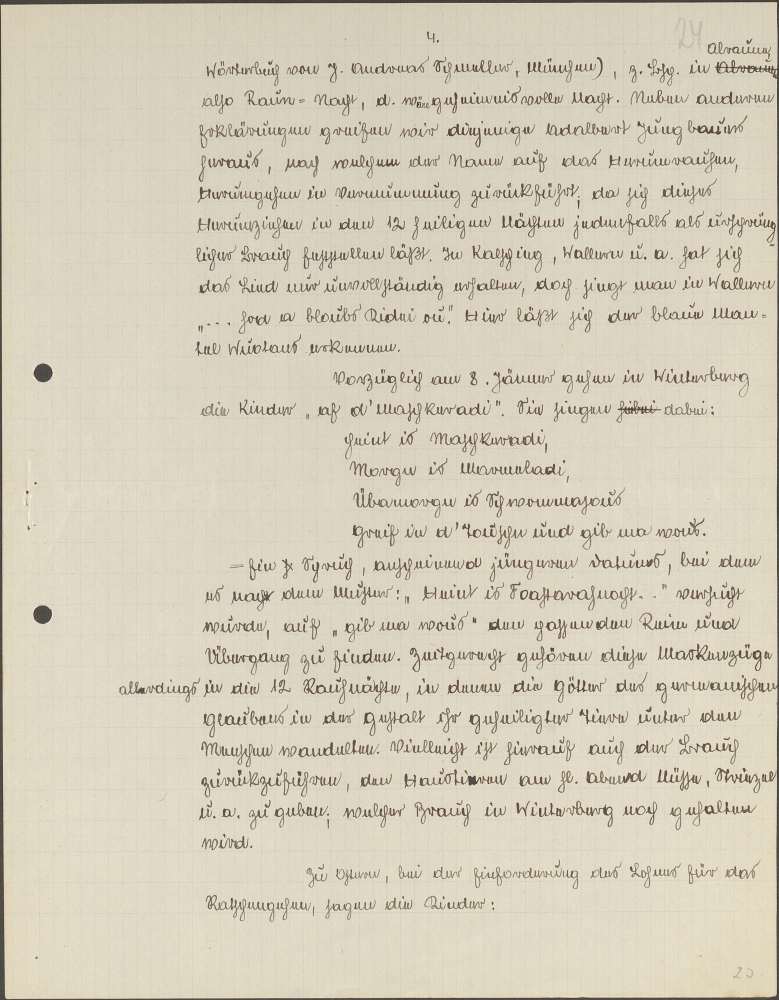 4.
24
Alraune,
Wörterbuch von J. Andreas Schmeller, München), z. Bsp. in Alraune
also Raun-Nacht, d. wäre geheimnisvolle Nacht. Neben anderen
Erklärungen greifen wir diejenige Adalbert Jungbauers
heraus, nach welchem der Name auf das Herumrauhen,
Herumgehen in Vermummung zurückführt; da sich dieses
Herumziehen in den 12 heiligen Nächten jedenfalls als ursprüng-
licher Brauch feststellen läßt. In Kalsching, Wallern u. a. hat sich
das Lied nur unvollständig erhalten, doch singt man in Wallern
„... hod a blaubs Kidai ou." Hier läßt sich der blaue Man-
tel Wuotans erkennen.
Vorzüglich am 8. Jänner gehen in Winterberg
die Kinder „af d'Maschkeradi". Sie singen hiebei dabei:
Heint is Maschkeradi,
Morgn is Marmeladi,
Übamorgn is Schwommasous
Greif in d'Touschn und gib ma wous.
- Ein Spruch, anscheinend jüngeren Datums, bei dem
es nach dem Muster: „Heint is Foasstarahnocht.." versucht
wurde, auf „gib ma wous" den passenden Reim und
Übergang zu finden. Zeitgerecht gehören diese Maskenzüge
allerdings in die 12 Rauhnächte, in denen die Götter des germanischen
Glaubens in der Gestalt ihr geheiligter Tiere unter den
Menschen wandelten. Vielleicht ist hierauf auch der Brauch
zurückzuführen, den Haustieren am hl. Abend Nüsse, Striezel
u. a. zu geben; welcher Brauch in Winterberg noch gehalten
wird.
Zu Ostern, bei der Einforderung des Lohnes für das
Ratschengehen, sagen die Kinder: